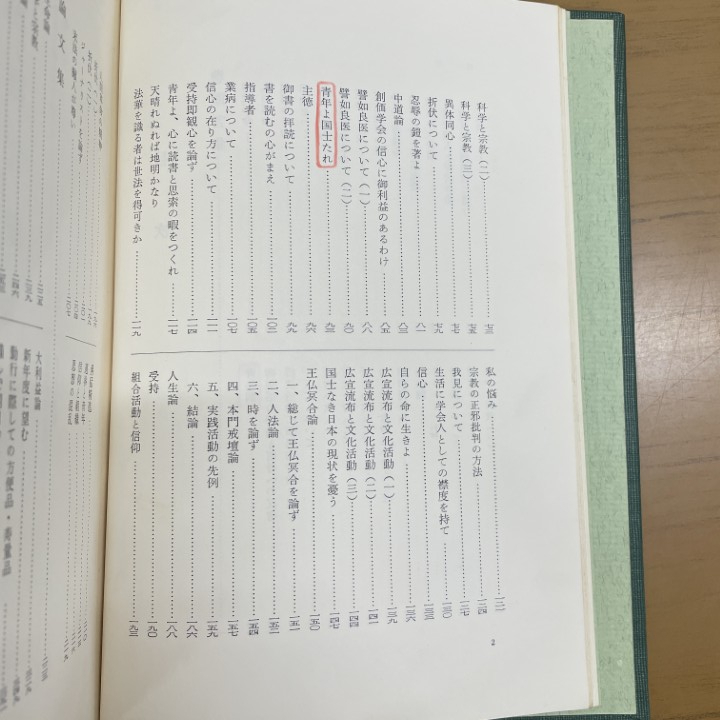 科学と宗教（二）……七三
科学と宗教（三）……七五
異体同心……七七
折伏について……七九
忍辱の鎧を著よ……八一
中道論……八三
創価学会の信心に御利益のあるわけ……八六
譬如良医について（一）……八八
譬如良医について（二）……九〇
青年よ国士たれ……九三
主徳……九六
御書の拝読について……九九
書を読むの心がまえ……一〇三
指導者……一〇五
業病について……一〇七
信心の在り方について……一一一
受持即観心を論ず……一一四
青年よ、心に読書と思索の暇をつくれ……一一七
天晴れぬれば地明かなり
法華を識る者は世法を得可きか……一一九
私の悩み……一二一
宗教の正邪批判の方法……一二四
我見について……一二七
生活に学会人としての襟度を持て……一三〇
信心……一三三
自らの命に生きよ……一三六
広宣流布と文化活動（一）……一三九
広宣流布と文化活動（二）……一四四
広宣流布と文化活動（三）……一四四
国士なき日本の現状を憂う……一四七
王仏冥合論……一五〇
一、総じて王仏冥合を論ず……一五一
二、人法論……一五二
三、時を論ず……一五四
四、本門戒壇論……一五七
五、実践活動の先例……一五九
六、結論……一八六
人生論……一八八
受持……一九〇
組合活動と信仰……一九三
2
論文集
大利益論
新年度に望む
勤行に際しての方便品・寿量品